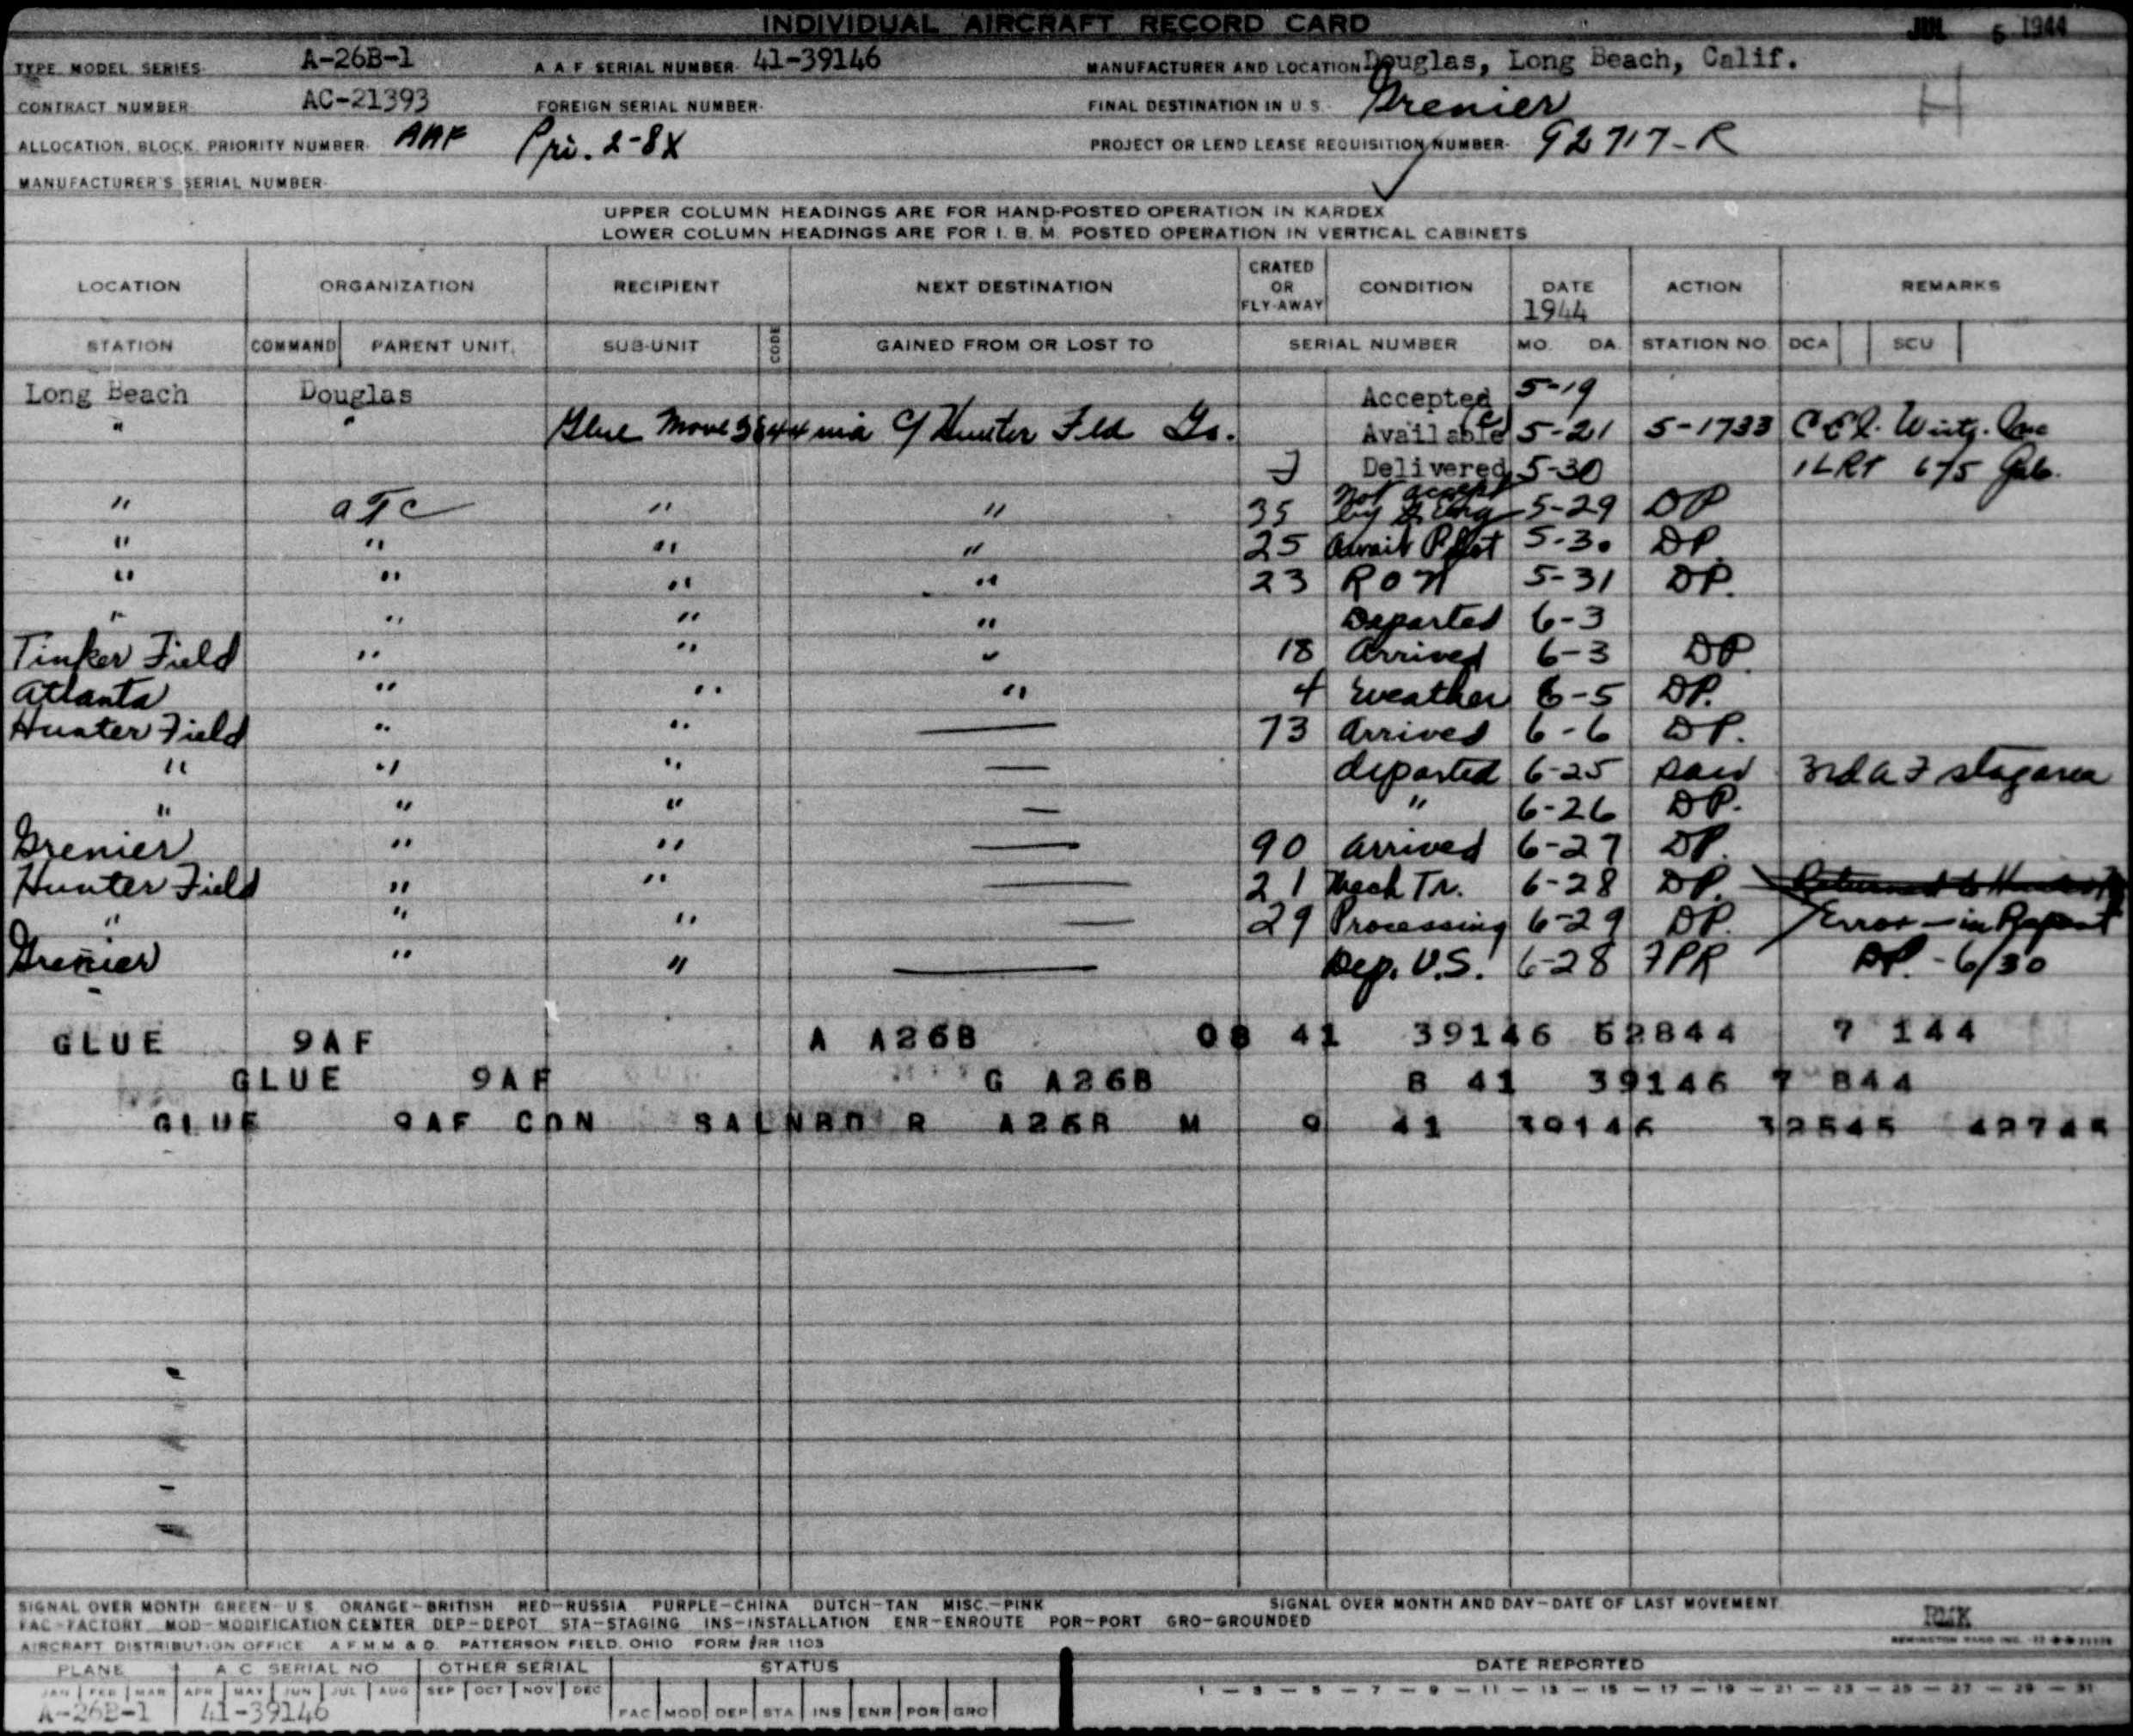 INDIVIDUAL AIRCRAFT RECORD CARD JUL 5 1944
TYPE MODEL SERIES A-26B-1 A A F SERIAL NUMBER 41-39146 MANUFACTURER AND LOCATION Douglas, Long Beach, Calif.
CONTRACT NUMBER AC-21393 FOREIGN SERIAL NUMBER FINAL DESTINATION IN U.S. Grenier H
ALLOCATION, BLOCK, PRIORITY NUMBER AAF Pri. 2-8X PROJECT OR LEND LEASE REQUISITION NUMBER 92717-R
MANUFACTURER'S SERIAL NUMBER
UPPER COLUMN HEADINGS ARE FOR HAND-POSTED OPERATION IN KARDEX
LOWER COLUMN HEADINGS ARE FOR I. B. M. POSTED OPERATION IN VERTICAL CABINETS
LOCATION ORGANIZATION RECIPIENT NEXT DESTINATION CRATED OR FLY-AWAY CONDITION DATE 1944 ACTION REMARKS
STATION COMMAND PARENT UNIT SUB-UNIT CODE GAINED FROM OR LOST TO SERIAL NUMBER MO. DA. STATION NO. DCA SCU
Long Beach Douglas Accepted 5-19
" " Glue Move via Hunter Fld Ga. Available 5-21 5-1733
Delivered 5-30 675 Gal.
" ATC " " 35 Not accept by 5-29 DP
" " " " 25 Await Pilot 5-30 DP.
" " " " 23 RON 5-31 DP.
" " " " Departed 6-3
Tinker Field " " " 18 Arrived 6-3 DP
Atlanta " " " 4 Weather 6-5 DP.
Hunter Field " " — 73 Arrived 6-6 DP.
" " " — departed 6-25 3rd AF stag area
" " " — " 6-26 DP.
Grenier " " — 90 Arrived 6-27 DP.
Hunter Field " " — 21 Mech Tr. 6-28 DP. Returned to Hunter
" " " — 29 Processing 6-29 DP. Error - in Report
Grenier " " — Dep. U.S. 6-28 FPR DP. - 6/30
GLUE 9AF A A26B 08 41 39146 62844 7 144
GLUE 9AF G A26B 8 41 39146 7 844
GLUE 9AF CON SALNBD R A26B M 9 41 39146 32545 42745
SIGNAL OVER MONTH GREEN-U.S. ORANGE-BRITISH RED-RUSSIA PURPLE-CHINA DUTCH-TAN MISC.-PINK SIGNAL OVER MONTH AND DAY-DATE OF LAST MOVEMENT
FAC-FACTORY MOD-MODIFICATION CENTER DEP-DEPOT STA-STAGING INS-INSTALLATION ENR-ENROUTE POR-PORT GRO-GROUNDED RMK
AIRCRAFT DISTRIBUTION OFFICE A F M M & D. PATTERSON FIELD, OHIO FORM RR 1103 REMINGTON RAND INC.
PLANE A C SERIAL NO OTHER SERIAL STATUS DATE REPORTED
JAN FEB MAR APR MAY JUN JUL AUG SEP OCT NOV DEC 1 - 3 - 5 - 7 - 9 - 11 - 13 - 15 - 17 - 19 - 21 - 23 - 25 - 27 - 29 - 31
A-26B-1 41-39146 FAC MOD DEP STA INS ENR POR GRO